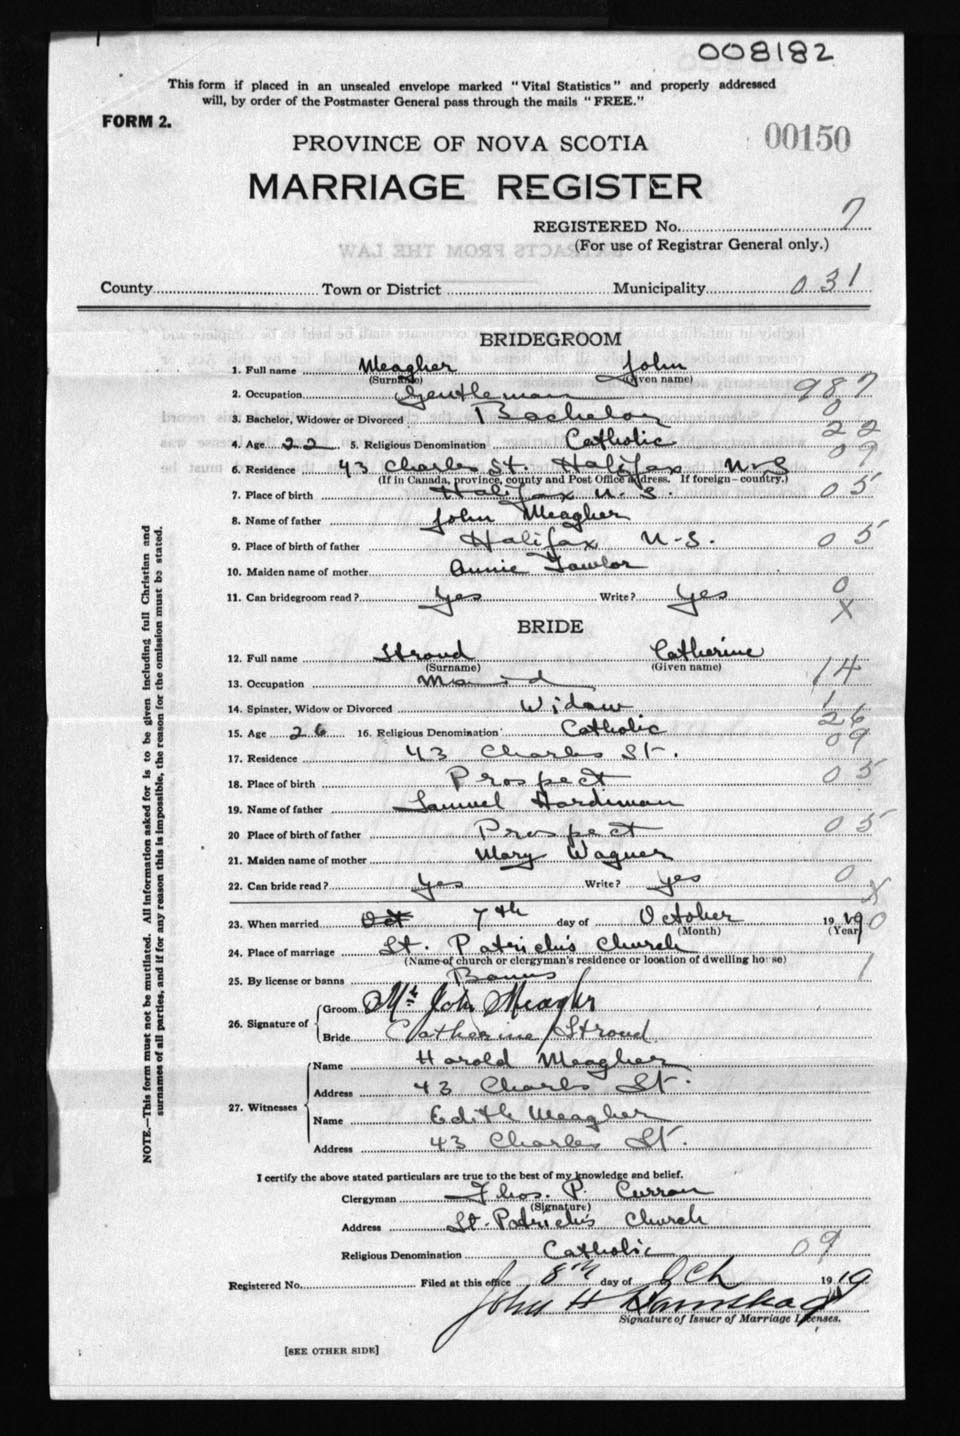 008182
This form if placed in an unsealed envelope marked "Vital Statistics" and properly addressed
will, by order of the Postmaster General pass through the mails "FREE."
FORM 2.
00150
PROVINCE OF NOVA SCOTIA
MARRIAGE REGISTER
REGISTERED No. 7
(For use of Registrar General only.)
EXTRACTS FROM THE LAW
County Town or District Municipality 031
BRIDEGROOM
1. Full name Meagher John
(Surname) (Given name)
2. Occupation Gentleman 987
3. Bachelor, Widower or Divorced Bachelor 0
4. Age 22 5. Religious Denomination Catholic 22
6. Residence 43 Charles St. Halifax N-S 09
(If in Canada, province, county and Post Office address. If foreign—country.)
7. Place of birth Halifax N. S. 05
8. Name of father John Meagher
9. Place of birth of father Halifax N-S. 05
10. Maiden name of mother Annie Lawlor
11. Can bridegroom read? Yes Write? Yes 0
X
BRIDE
12. Full name Stroud Catherine
(Surname) (Given name)
13. Occupation Maid 14
14. Spinster, Widow or Divorced Widow 1
15. Age 26 16. Religious Denomination Catholic 26
17. Residence 43 Charles St. 09
18. Place of birth Prospect 05
19. Name of father Samuel Hardiman
20 Place of birth of father Prospect 05
21. Maiden name of mother Mary Wagner
22. Can bride read? Yes Write? Yes 0
X
23. When married Oct 7th day of October 19 19 0
(Month) (Year)
24. Place of marriage St. Patrick's Church
(Name of church or clergyman's residence or location of dwelling house)
25. By license or banns Banns 1
26. Signature of
Groom Mr John Meagher
Bride Catherine Stroud
27. Witnesses
Name Harold Meagher
Address 43 Charles St.
Name Edith Meagher
Address 43 Charles St.
I certify the above stated particulars are true to the best of my knowledge and belief.
Clergyman Thos. P. Curran
(Signature)
Address St. Patrick's Church
Religious Denomination Catholic 09
Registered No. Filed at this office 8th day of Och 19 19
John H
Signature of Issuer of Marriage Licenses.
[SEE OTHER SIDE]
NOTE.—This form must not be mutilated. All information asked for is to be given including full Christian and
surnames of all parties, and if for any reason this is impossible, the reason for the omission must be stated.